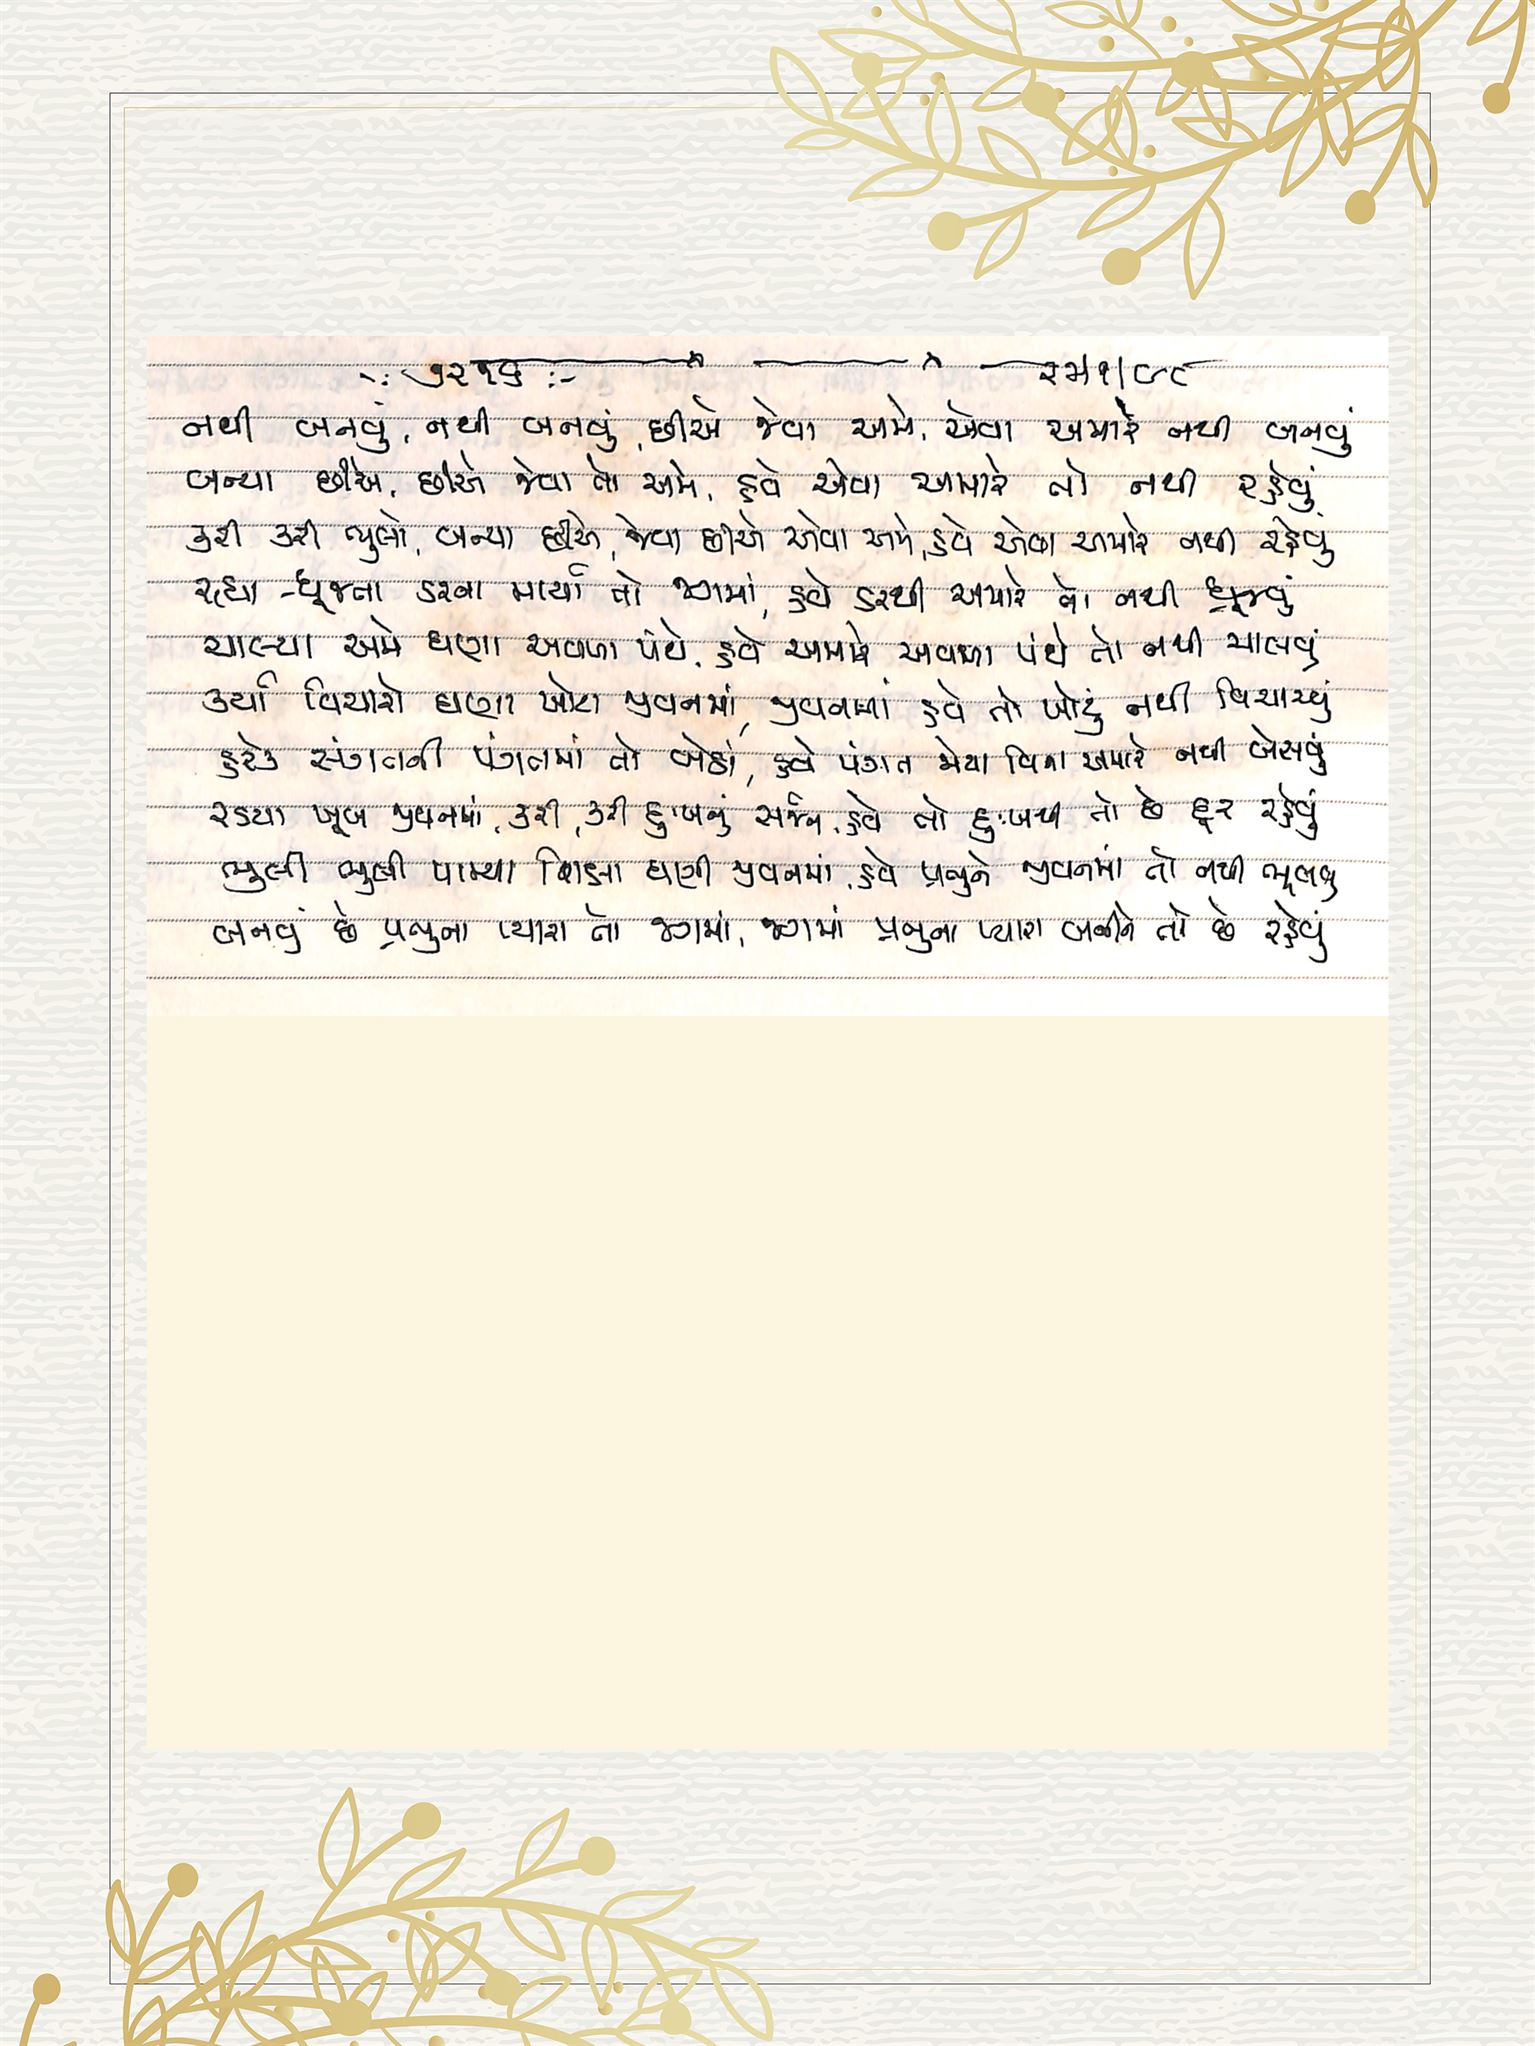 નથી બનવું, નથી બનવું, છીએ જેવા અમે, એવા અમારે નથી બનવું
બન્યા છીએ, છીએ જેવા તો અમે, હવે એવા અમારે તો નથી રહેવું
કરી કરી ભુલો, બન્યા છીએ, જેવા છીએ એવા અમે, હવે એવા અમારે નથી રહેવું
રહ્યા ધ્રૂજતા ડરના માર્યા તો જગમાં, હવે ડરથી અમારે તો નથી ધ્રૂજવું
ચાલ્યા અમે ઘણા અવળા પંથે, હવે અમારે અવળા પંથે તો નથી ચાલવું
કર્યા વિચારો ઘણા ખોટા જીવનમાં, જીવનમાં હવે તો ખોટું નથી વિચારવું
હરેક સંગતની પંગતમાં તો બેઠાં, હવે પંગત મેવા વિના અમારે નથી બેસવું
રડયા ખૂબ જીવનમાં, કરી, કરી દુઃખનું સર્જન, હવે તો દુઃખથી તો છે દૂર રહેવું
ભુલી ભુલી પામ્યા શિક્ષા ઘણી જીવનમાં, હવે પ્રભુને જીવનમાં તો નથી ભૂલવું
બનવું છે પ્રભુના પ્યારા તો જગમાં, જગમાં પ્રભુના પ્યારા બનીને તો છે રહેવું